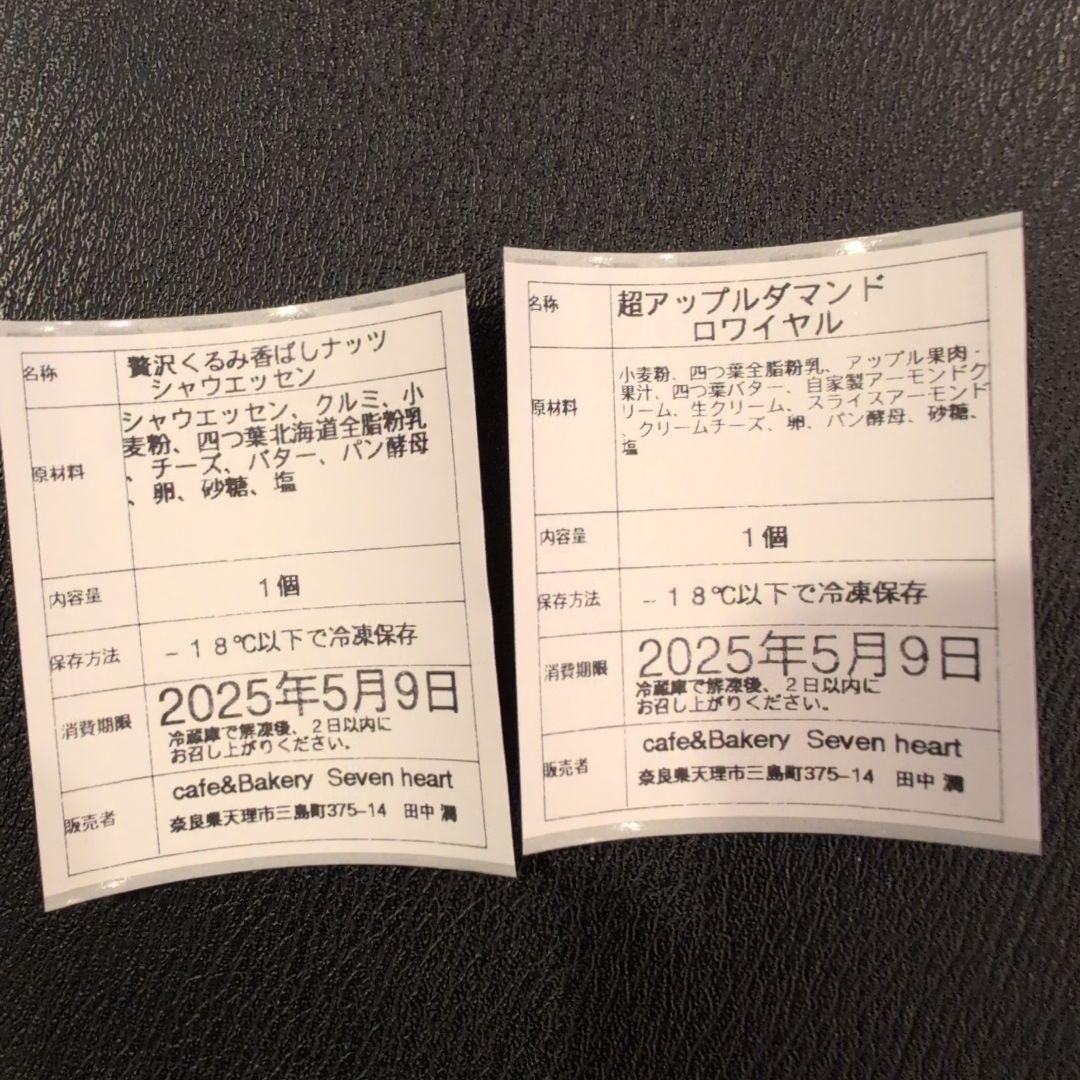 名称
贅沢くるみ香ばしナッツ
シャウエッセン
原材料
シャウエッセン、クルミ、小
麦粉、四つ葉北海道全脂粉乳
、チーズ、バター、パン酵母
、卵、砂糖、塩
内容量
1個
保存方法
−18℃以下で冷凍保存
消費期限
2025年5月9日
冷蔵庫で解凍後、2日以内に
お召し上がりください。
販売者
cafe&Bakery Seven heart
奈良県天理市三島町375−14 田中 潤
名称
超アップルダマンド
ロワイヤル
原材料
小麦粉、四つ葉全脂粉乳、アップル果肉・
果汁、四つ葉バター、自家製アーモンドク
リーム、生クリーム、スライスアーモンド
、クリームチーズ、卵、パン酵母、砂糖、
塩
内容量
1個
保存方法
−18℃以下で冷凍保存
消費期限
2025年5月9日
冷蔵庫で解凍後、2日以内に
お召し上がりください。
販売者
cafe&Bakery Seven heart
奈良県天理市三島町375−14 田中 潤